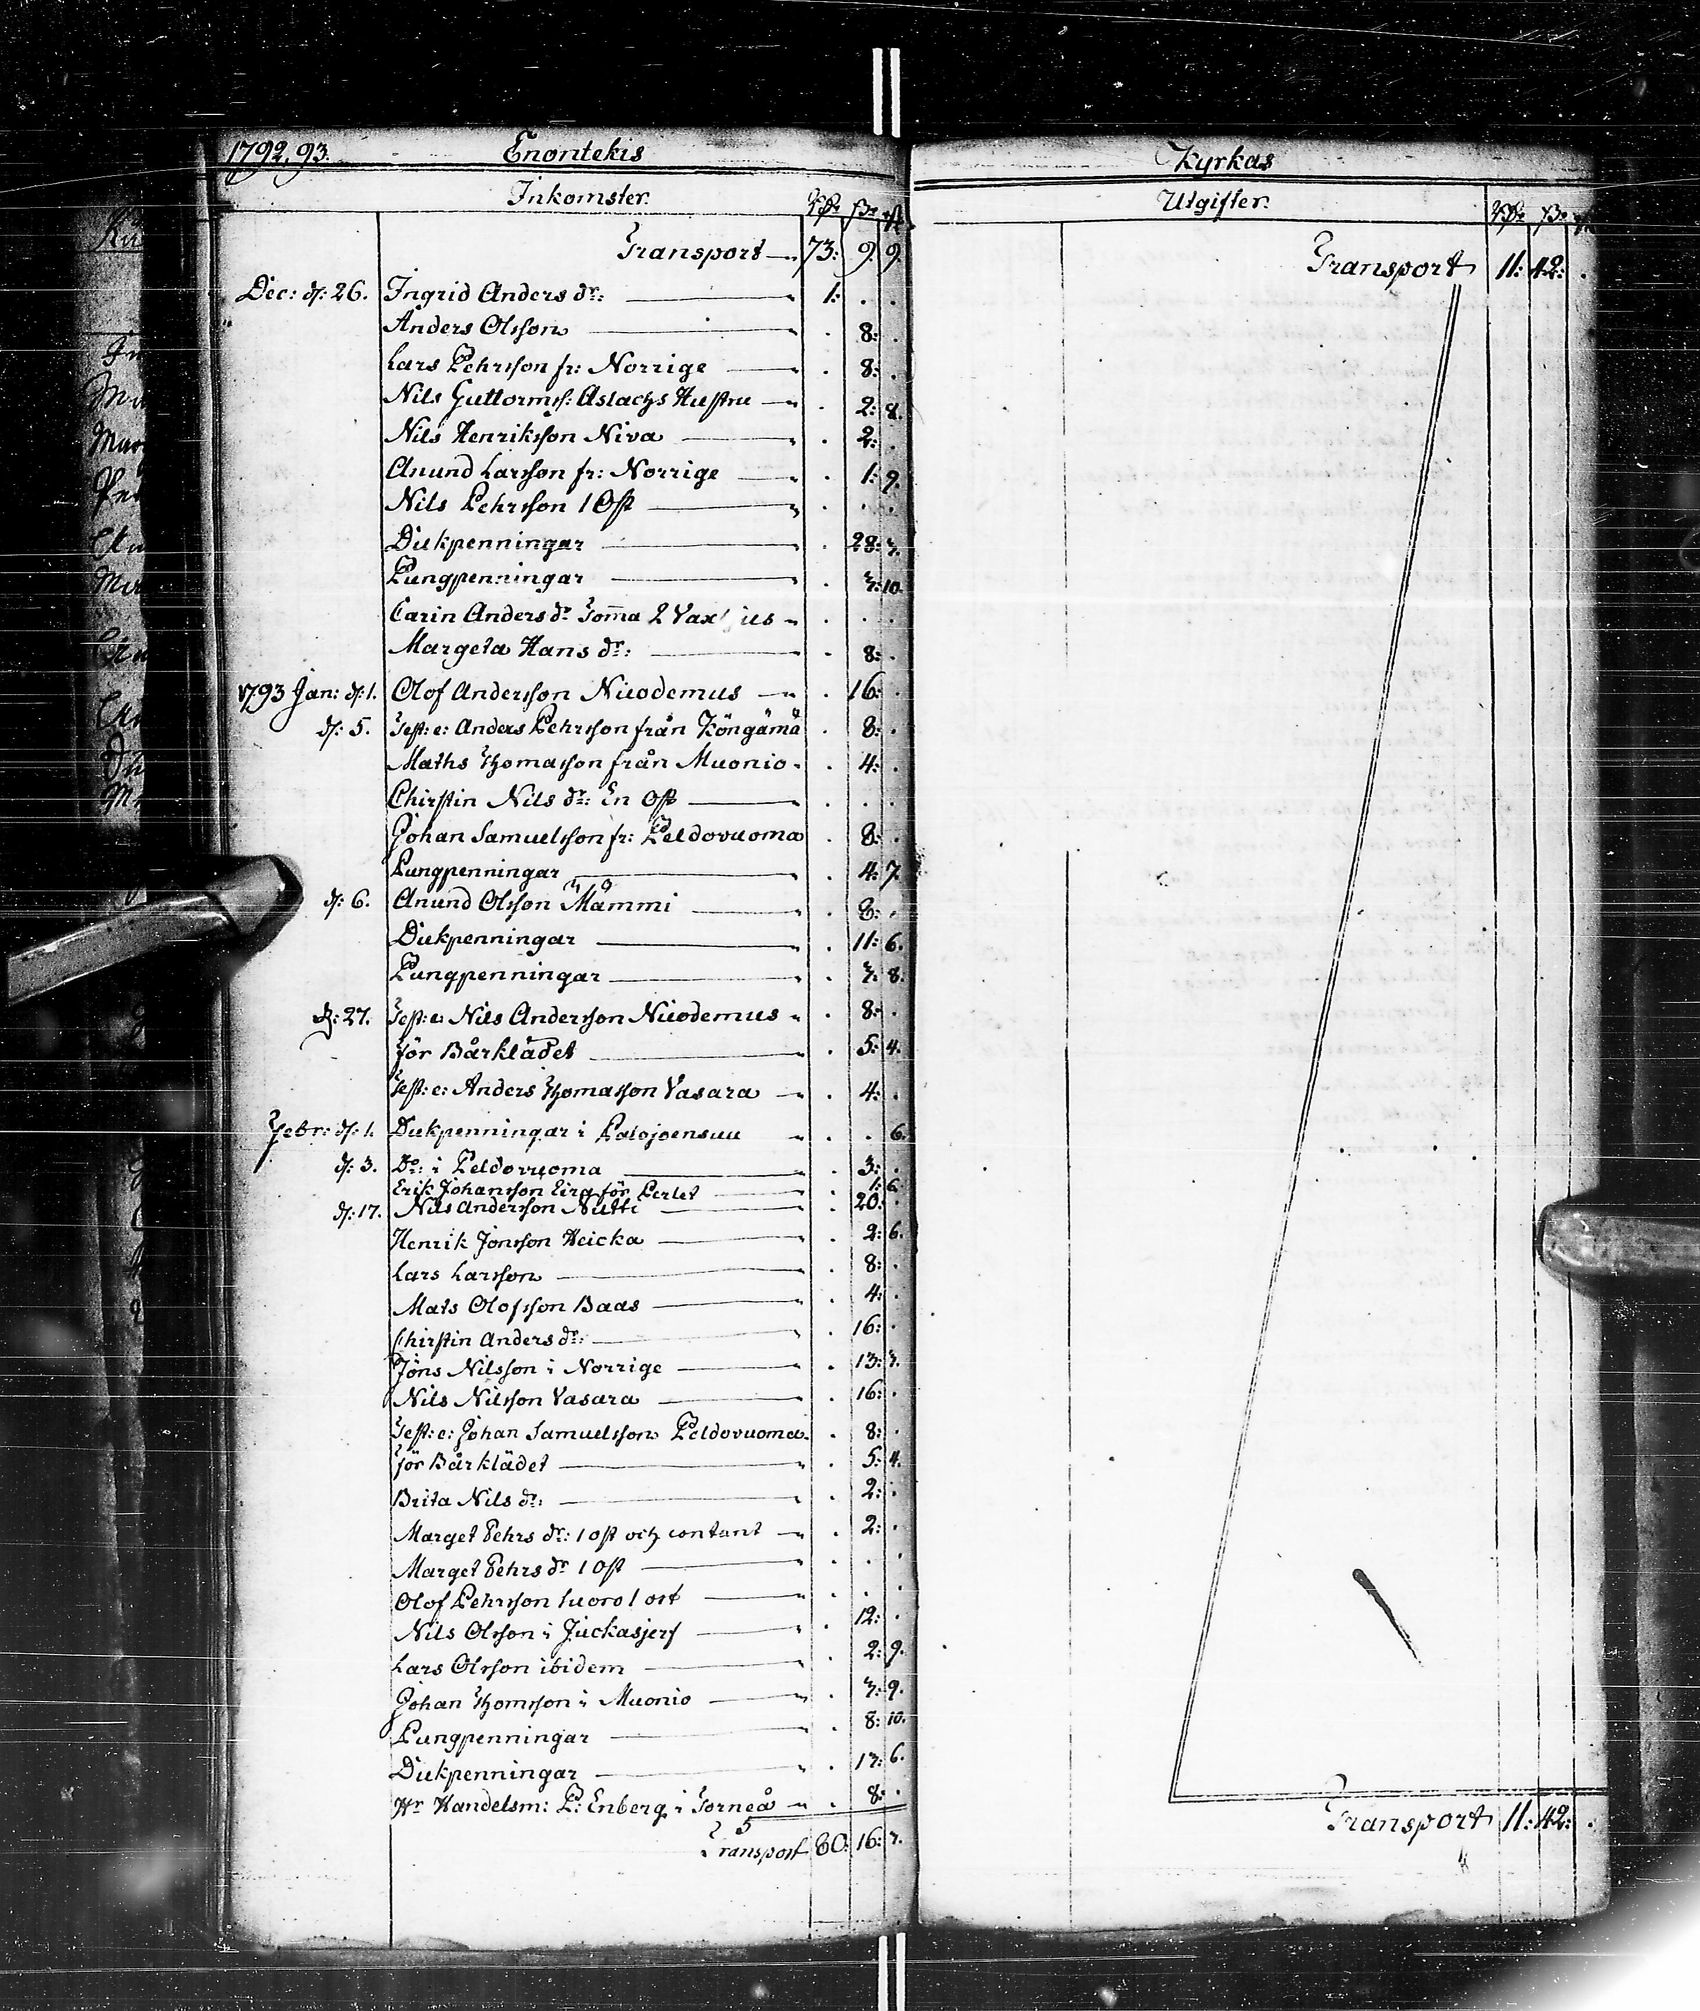 1792, 93. Enontekis
Inkomster. Rdr ß. rst
Transport 73: 9. 9.
Dec: d: 26. Ingrid Anders dr: 1: . .
Anders Olsson . 8: .
Lars Pehrsson fr: Norrige . 8: .
Nils Guttormss: Aslachs Hustru . 2: 8.
Nils Henriksson Niva . 2: .
Anund Larsson fr: Norrige . 1: 9.
Nils Pehrsson 1 Ost . . .
Dukpenningar . 28: 3.
Pungpenningar . 3: 10.
Carin Anders dr Tom̄a 2 . . .
Margeta Hans dr: . 8: .
1793 Jan: d: 1. Olof Andersson Nicodemus . 16: .
d: 5. Test: e: Anders Pehrsson från Köngämä . 8: .
Maths Thomasson från Muonio . 4: .
Chirstin Nils dr: En Ost . . .
Johan Samuelsson fr: Peldovuoma . 8: .
Pungpenningar . 4: 7.
d: 6. Anund Olsson Mämmi . 8: .
Dukpenningar . 11: 6.
Pungpenningar . 3: 8.
d: 27. Test: e: Nils Andersson Nicodemus . 8: .
för Bårklädet . 5: 4.
Test: e: Anders Thomasson Vasara . 4: .
Febr: d: 1. Dukpenningar i Palojoensuu . . 6.
d: 3. Do: i Peldovuoma . 3: .
Erik Johansson Eira för Perlet . 1: 6.
d: 17. Nils Andersson Nutti . 20: .
Henrik Jönsson Heicka . 2: 6.
Lars Larsson . 8: .
Mats Olofsson Baas . 4: .
Chirstin Anders dr: . 16: .
Jöns Nilsson i Norrige . 13: 3.
Nils Nilsson Vasara . 16: .
Test: e: Johan Samuelsson Peldovuoma . 8: .
för Bårklädet . 5: 4.
Brita Nils dr: . 2: .
Marget Pehrs dr: 1 ost och contant . 2: .
Marget Pehrs dr 1 Ost . . .
Olof Pehrsson Suoro 1 ost . . .
Nils Olsson i Juckasjerf . 12: .
Lars Olsson ibidem . 2: 9.
Johan Thomsson i Muonio . 3: 9.
Pungpenningar . 8: 10.
Dukpenningar . 13: 6.
Hr Handelsm: P: Enberg i Torneå . 8: .
Transport 80: 16: 3.
Kyrkas
Utgifter. Rdr ß. rst
Transport 11: 42: .
Transport 11: 42: .